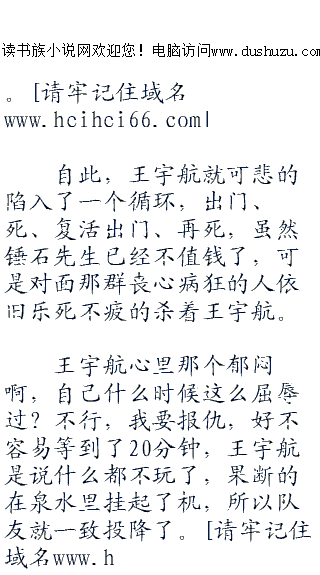 读书族小说网欢迎您！电脑访问www.dushuzu.com
。[请牢记住域名
www.hcihci66.com|
自此，王宇航就可悲的
陷入了一个循环，出门、
死、复活出门、再死，虽然
锤石先生已经不值钱了，可
是对面那群丧心病狂的人依
旧乐死不疲的杀着王宇航。
王宇航心里那个郁闷
啊，自己什么时候这么屈辱
过？不行，我要报仇，好不
容易等到了20分钟，王宇航
是说什么都不玩了，果断的
在泉水里挂起了机，所以队
友就一致投降了。[请牢记住
域名www.h